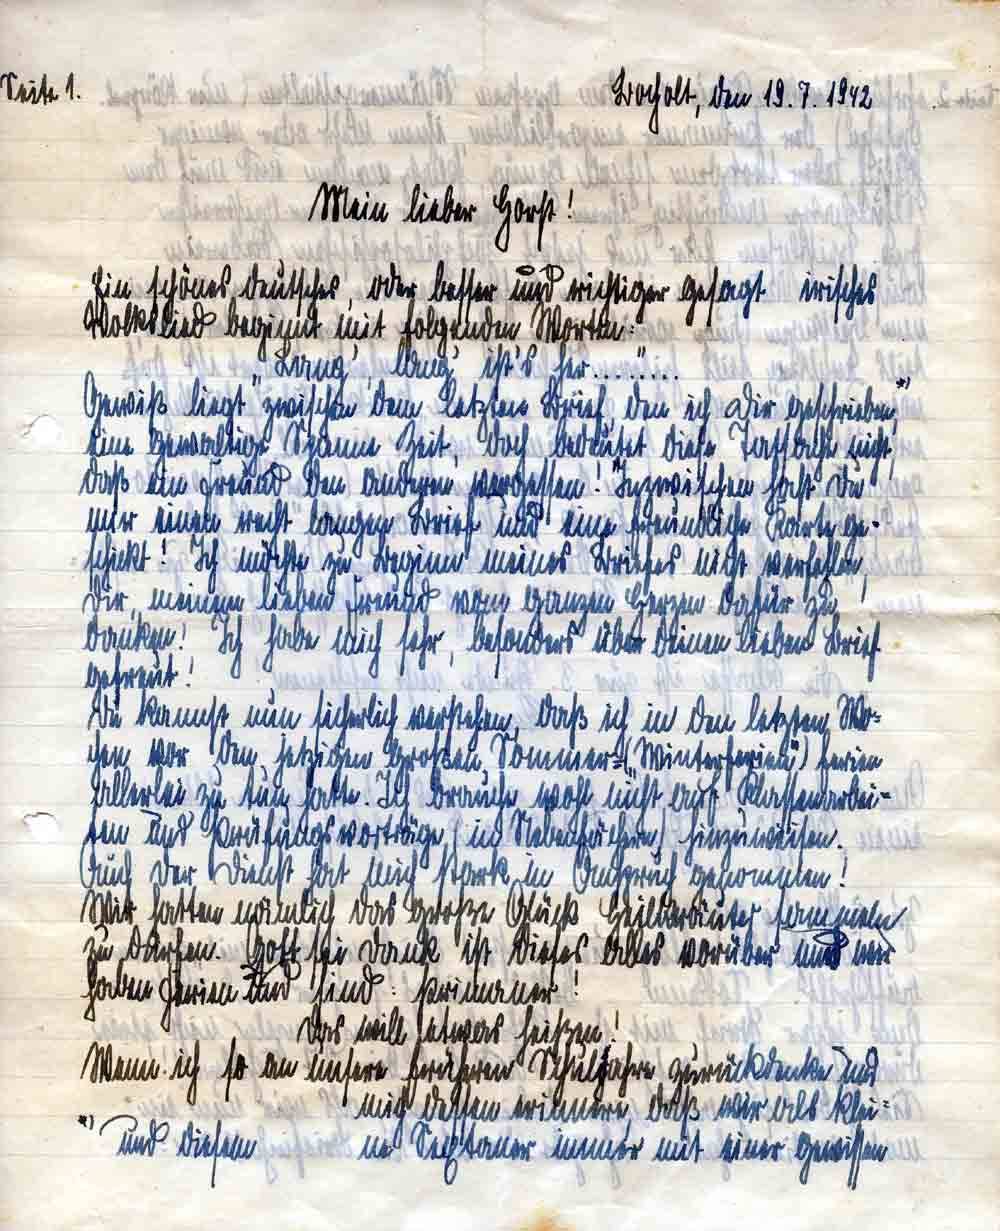 Seite 1.
Bocholt, den 19.7.1942
Mein lieber Horst!
Ein schönes deutsches, oder besser und richtiger gesagt irisches
Volkslied beginnt mit folgenden Worten:
"Lang', lang' ist's her........"
Gewiß liegt zwischen dem letzten Brief, den ich Dir geschrieben, *)
eine gewaltige Spanne Zeit, doch bedeutet diese Tatsache nicht,
daß ein Freund den anderen vergessen! Inzwischen hast Du
mir einen recht langen Brief und eine freundliche Karte ge-
schickt! Ich möchte zu Beginn meines Briefes nicht verfehlen,
Dir, meinem lieben Freund vom ganzen Herzen dafür zu
danken! Ich habe mich sehr, besonders über deinen lieben Brief
gefreut!
Du kannst nun sicherlich verstehen, daß ich in den letzten Wo-
chen vor den jetzigen großen Sommer-("Winterferien") ferien
allerlei zu tun hatte. Ich brauche wohl nicht auf Klassenarbei-
ten und Prüfungsvorträge (in Nebenfächern) hinzuweisen.
Auch der Dienst hat mich stark in Anspruch genommen!
Wir hatten nämlich das große Glück Heilkräuter sammeln
zu dürfen. Gott sei Dank ist dieses alles vorüber und wir
haben Ferien und sind: Primaner!
Das will etwas heißen!
Wenn ich so an unsere früheren Schuljahre zurückdenke und
mich dessen erinnere, daß wir als klei-
*) und diesem
ne Sextaner immer mit einer gewissen